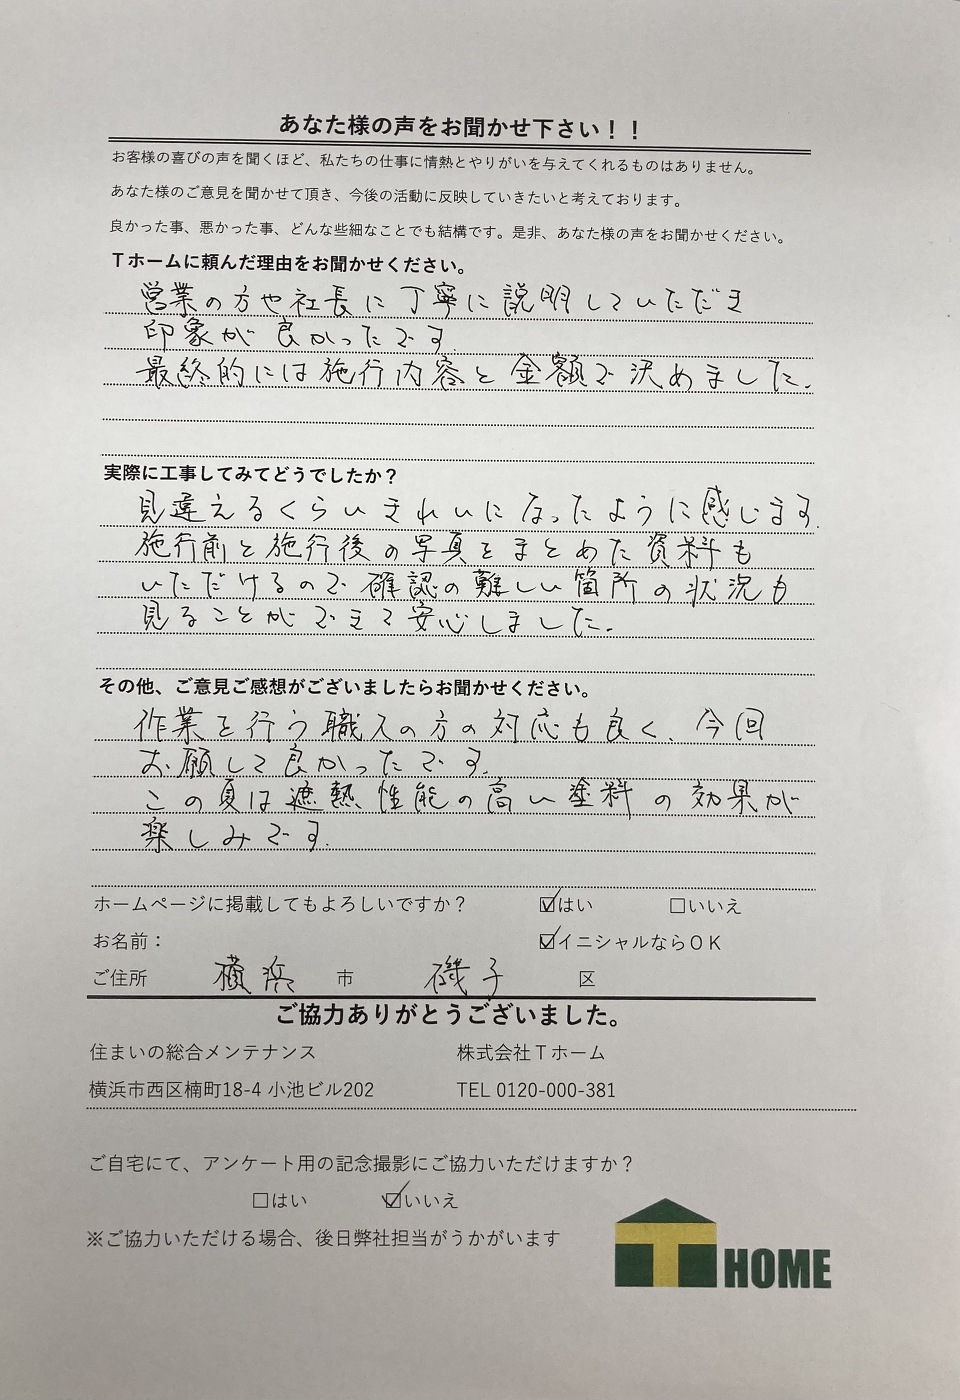 あなた様の声をお聞かせ下さい！！
お客様の喜びの声を聞くほど、私たちの仕事に情熱とやりがいを与えてくれるものはありません。
あなた様のご意見を聞かせて頂き、今後の活動に反映していきたいと考えております。
良かった事、悪かった事、どんな些細なことでも結構です。是非、あなた様の声をお聞かせください。
Ｔホームに頼んだ理由をお聞かせください。
営業の方や社長に丁寧に説明していただき
印象が良かったです.
最終的には施行内容と金額で決めました.
実際に工事してみてどうでしたか？
見違えるくらいきれいになったように感じます.
施行前と施行後の写真をまとめた資料も
いただけるので確認の難しい箇所の状況も
見ることができて安心しました.
その他、ご意見ご感想がございましたらお聞かせください。
作業を行う職人の方の対応も良く、今回
お願して良かったです.
この夏は遮熱性能の高い塗料の効果が
楽しみです.
ホームページに掲載してもよろしいですか？ ☑はい □いいえ
お名前： ☑イニシャルならＯＫ
ご住所 横浜 市 磯子 区
ご協力ありがとうございました。
住まいの総合メンテナンス 株式会社Ｔホーム
横浜市西区楠町18-4 小池ビル202 TEL 0120-000-381
ご自宅にて、アンケート用の記念撮影にご協力いただけますか？
□はい ☑いいえ
※ご協力いただける場合、後日弊社担当がうかがいます
T HOME